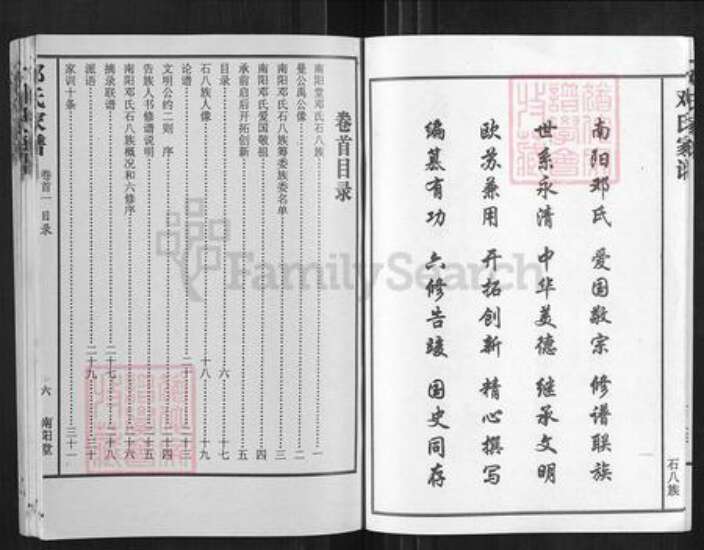 邓氏家谱
南阳邓氏 爱国敬宗 修谱联族
世系永清 中华美德 继承文明
欧苏兼用 开拓创新 精心撰写
编纂有功 六修告竣 国史同存
石八族
卷首目录
南阳堂邓氏石八族 一
曼公禹公像 二
南阳邓氏石八族筹委族委名单 三
南阳邓氏爱国敬祖 四
承前启后开拓创新 五
目录 六 十七
石八族人像 十八 十九
论谱 二十 二十三
文明公约二则 序 二十四
告族人书修谱说明 二十五
南阳邓氏石八族概况和六修序 二十六
摘录联谱 二十七 二十八
派语 二十九 三十
家训十条 三十一
邓氏家谱
卷首一 目录
六 南阳堂
FamilySearch